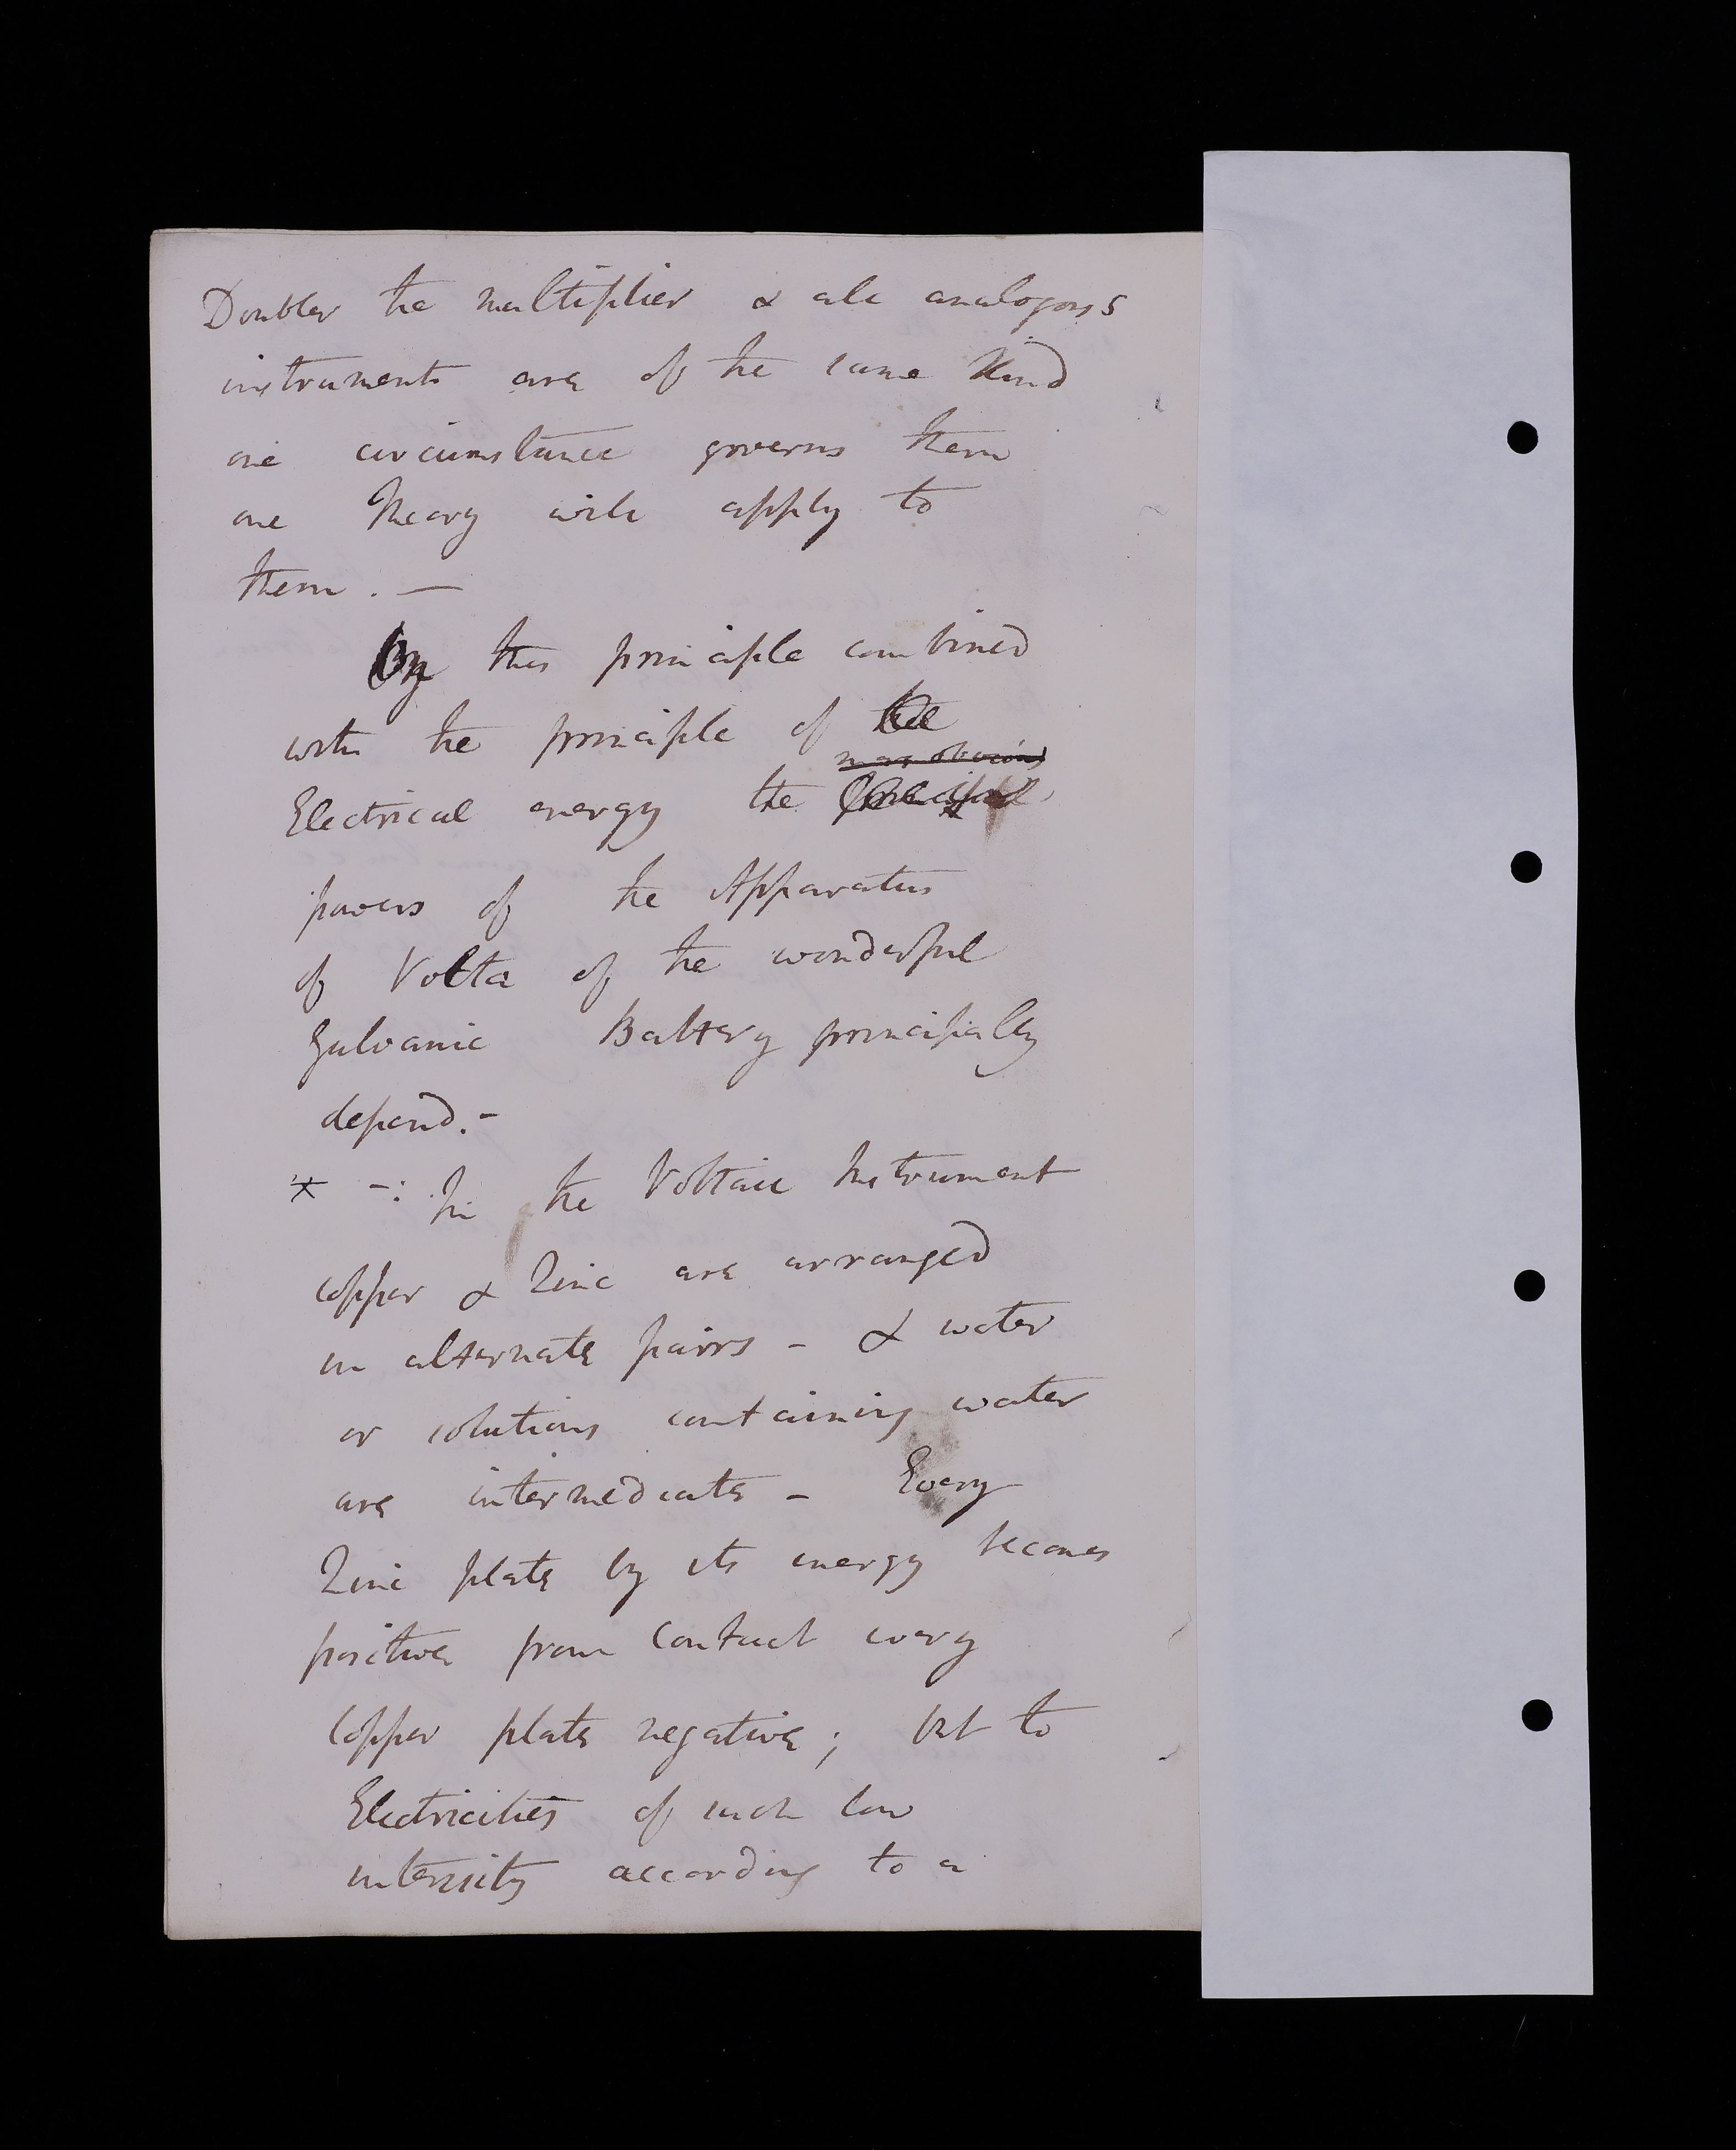 Doubler the multiplier & all analogous
instruments are of the same kind
one circumstance governs them
one Theory will apply to
them. —
By this principle combined
with the principle of the
Electrical energy the
powers of the Apparatus
of Volta of the wonderful
Galvanic Battery principally
depend. -
* -: In the Voltaic Instrument
copper & Zinc are arranged
in alternate pairs - & water
or solutions containing water
are intermediate - Every
Zinc plate by its energy becomes
positive from contact every
Copper plate negative; but to
Electricities of such low
intensity according to a